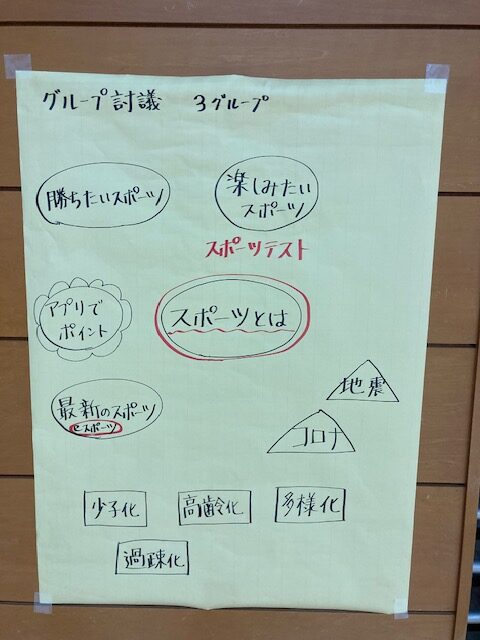 グループ討議　3グループ
勝ちたいスポーツ
楽しみたい
スポーツ
スポーツテスト
アプリで
ポイント
スポーツとは
地震
最新のスポーツ
eスポーツ
コロナ
少子化
高齢化
多様化
過疎化